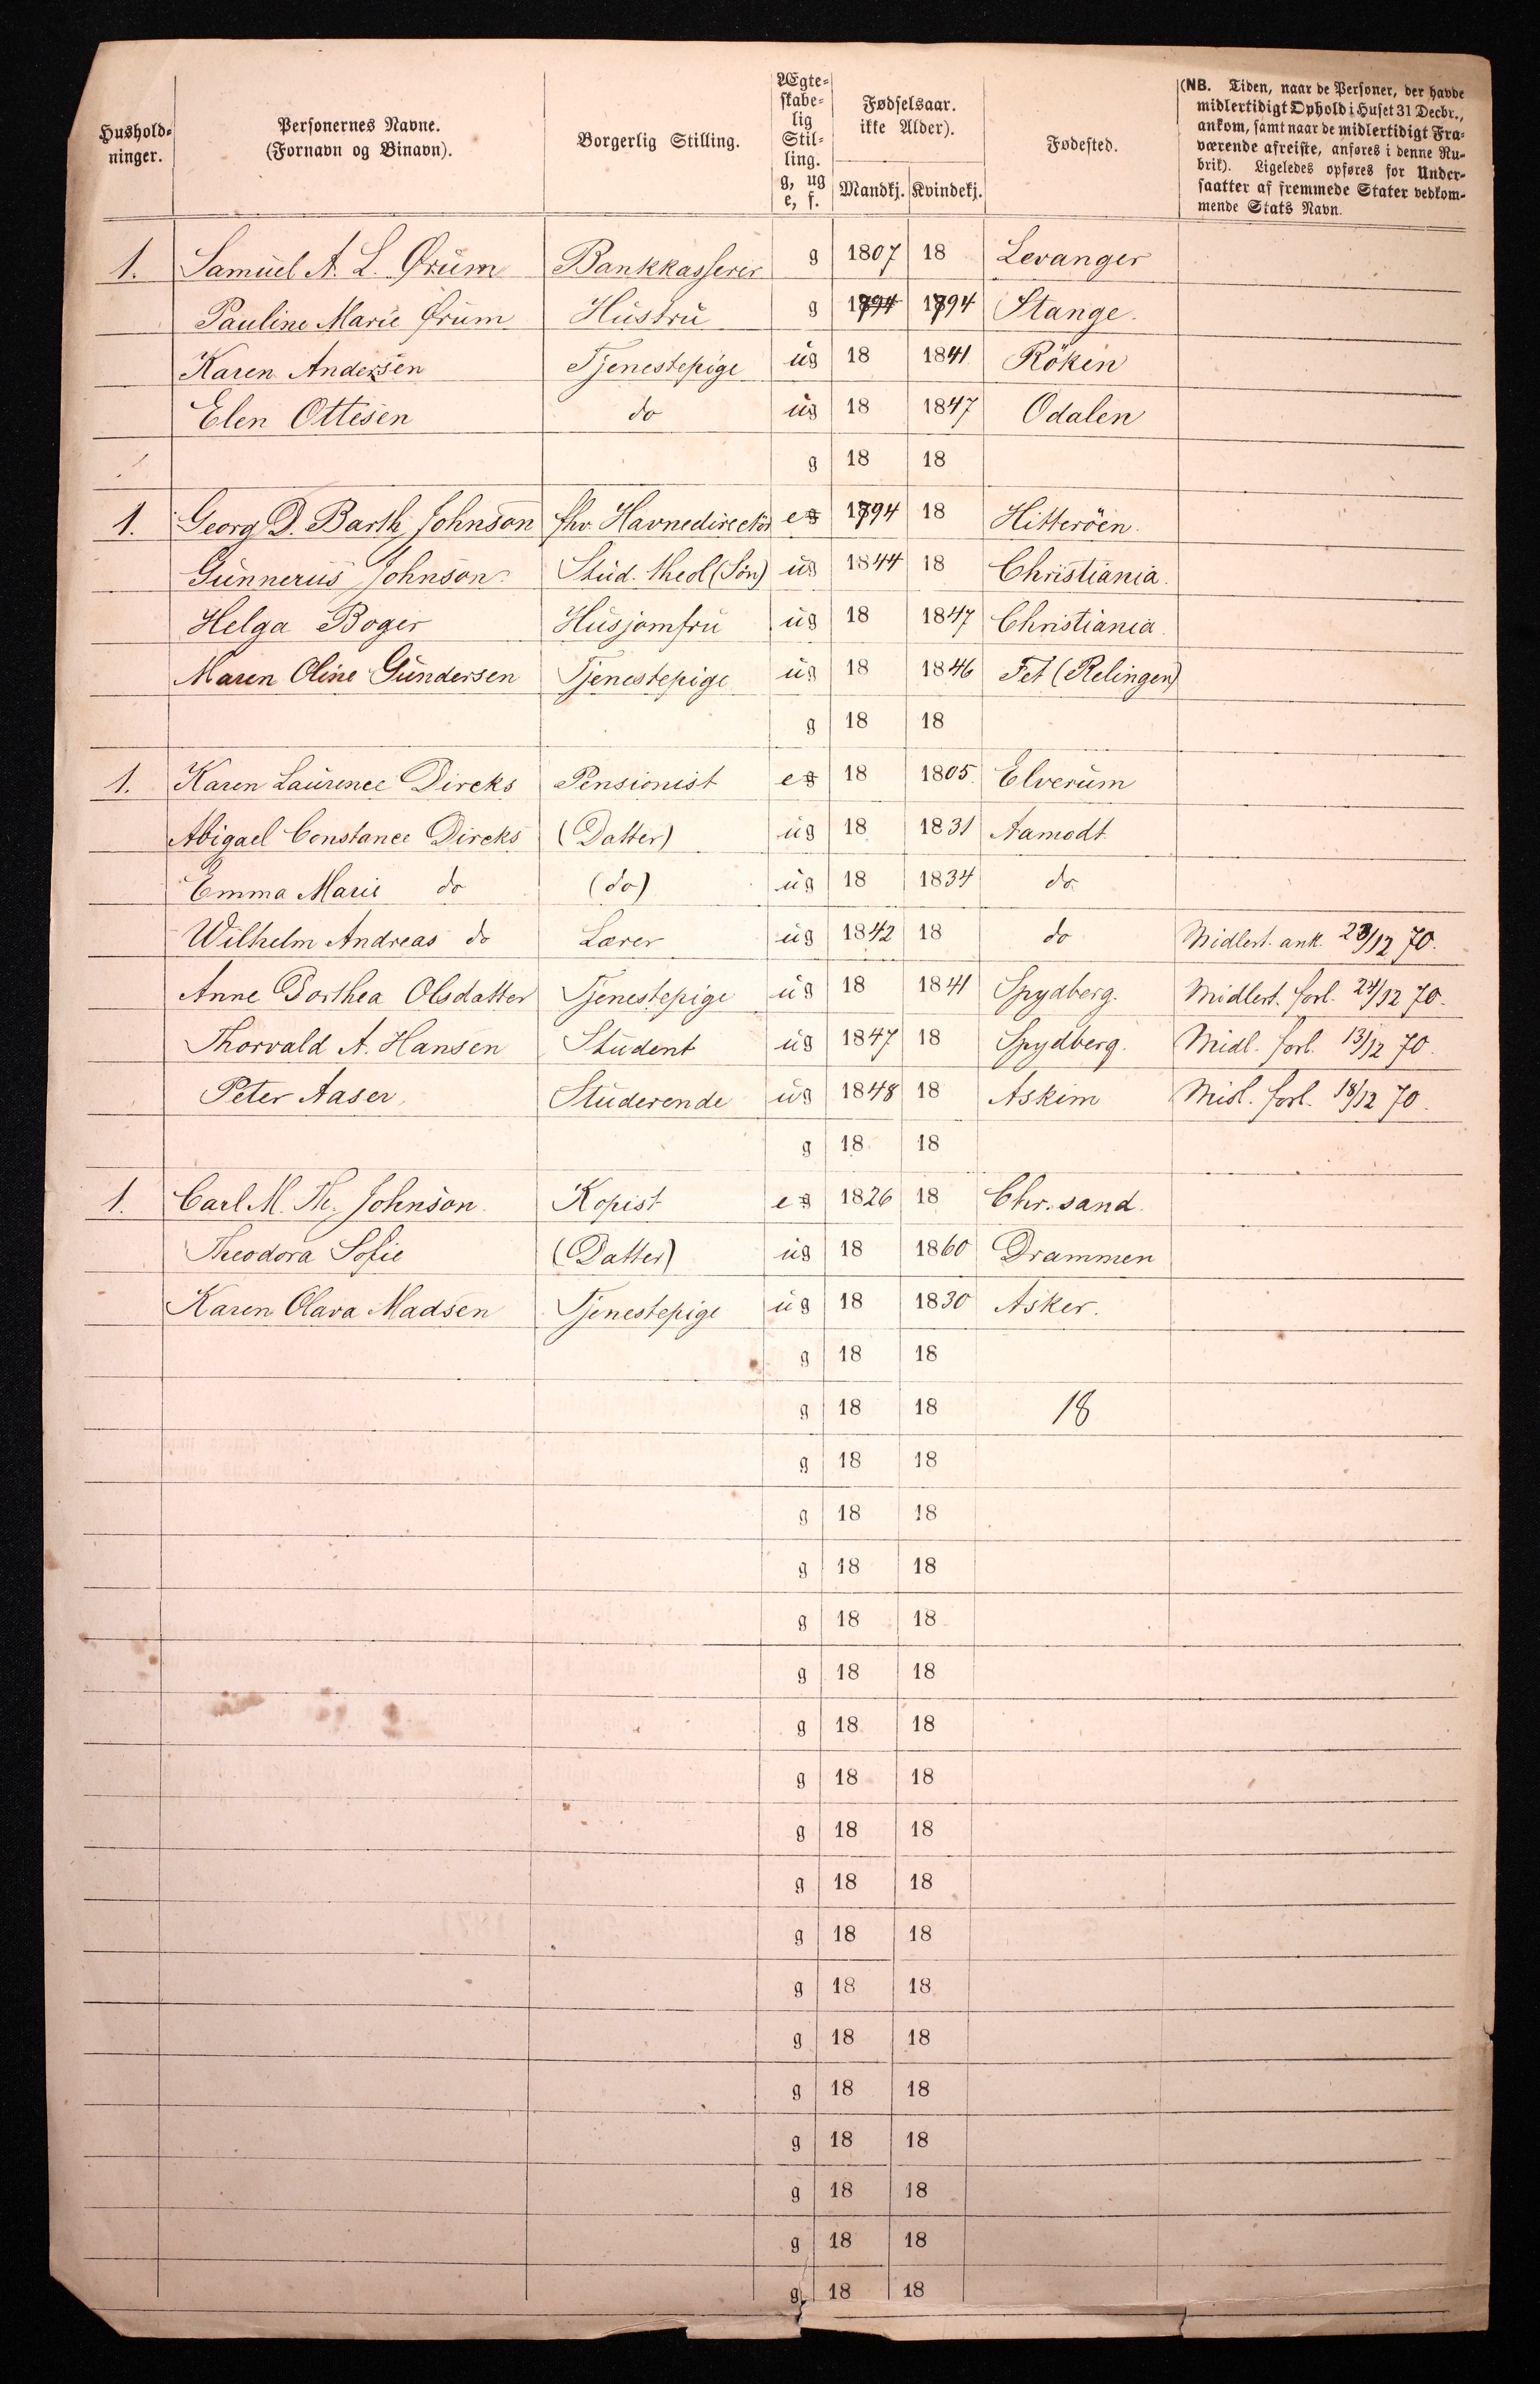 Hushold-ninger. | Personernes Navne. (Fornavn og Binavn). | Borgerlig Stilling. | Ægte-skabe-lig Stil-ling. g, ug e, f. | Fødselsaar. ikke Alder). Mandkj. | Kvindekj. | Fødested. | (NB. Tiden, naar de Personer, der havde midlertidigt Ophold i Huset 31 Decbr., ankom, samt naar de midlertidigt Fra-værende afreiste, anføres i denne Ru-brik). Ligeledes opføres for Under-saatter af fremmede Stater vedkom-mende Stats Navn.
1. Samuel A. L. Ørum Bankkasserer g 1807 18 Levanger
Pauline Marie Ørum Hustru g 1794 1794 Stange.
Karen Andersen Tjenestepige ug 18 1841 Röken
Elen Ottesen do ug 18 1847 Odalen
g 18 18
1. Georg D. Barth Johnson fhv. Havnedirectör eg 1794 18 Hitteröen.
Gunnerus Johnson. Stud. theol (Sön) ug 1844 18 Christiania.
Helga Boger Husjomfru ug 18 1847 Christiania.
Maren Oline Gundersen Tjenestepige ug 18 1846 Fet (Relingen)
g 18 18
1. Karen Laurence Dircks Pensionist eg 18 1805 Elverum
Abigael Constance Dircks (Datter) ug 18 1831 Aamodt
Emma Marie do (do) ug 18 1834 do
Wilhelm Andreas do Lærer ug 1842 18 do Midlert. ank. 23/12 70.
Anne Dorthea Olsdatter Tjenestepige ug 18 1841 Spydberg. Midlert. forl. 24/12 70.
Thorvald A. Hansen Student ug 1847 18 Spydberg. Midl. forl. 13/12 70.
Peter Aaser. Studerende ug 1848 18 Askim Midl. forl. 18/12 70.
g 18 18
1. Carl M. Th. Johnson. Kopist eg 1826 18 Chr. sand.
Theodora Sofie (Datter) ug 18 1860 Drammen
Karen Olava Madsen Tjenestepige ug 18 1830 Asker.
g 18 18
g 18 18 18
g 18 18
g 18 18
g 18 18
g 18 18
g 18 18
g 18 18
g 18 18
g 18 18
g 18 18
g 18 18
g 18 18
g 18 18
g 18 18
g 18 18
g 18 18
g 18 18
g 18 18